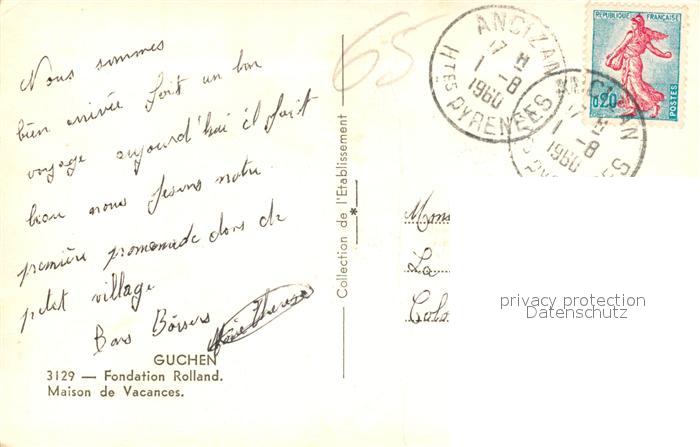 Nous sommes
bien arrivée fait un bon
voyage aujourd'hui il fait
beau nous fesons notre
première promenade dans ce
petit village
Bons Baisers
GUCHEN
3129 — Fondation Rolland.
Maison de Vacances.
Collection de l'Etablissement
65
ANCIZAN
17 H
1 -8
1960
HTES PYRENEES
ANCIZAN
17 H
1 -8
1960
REPUBLIQUE FRANÇAISE
0,20
POSTES
La
privacy protection
Datenschutz